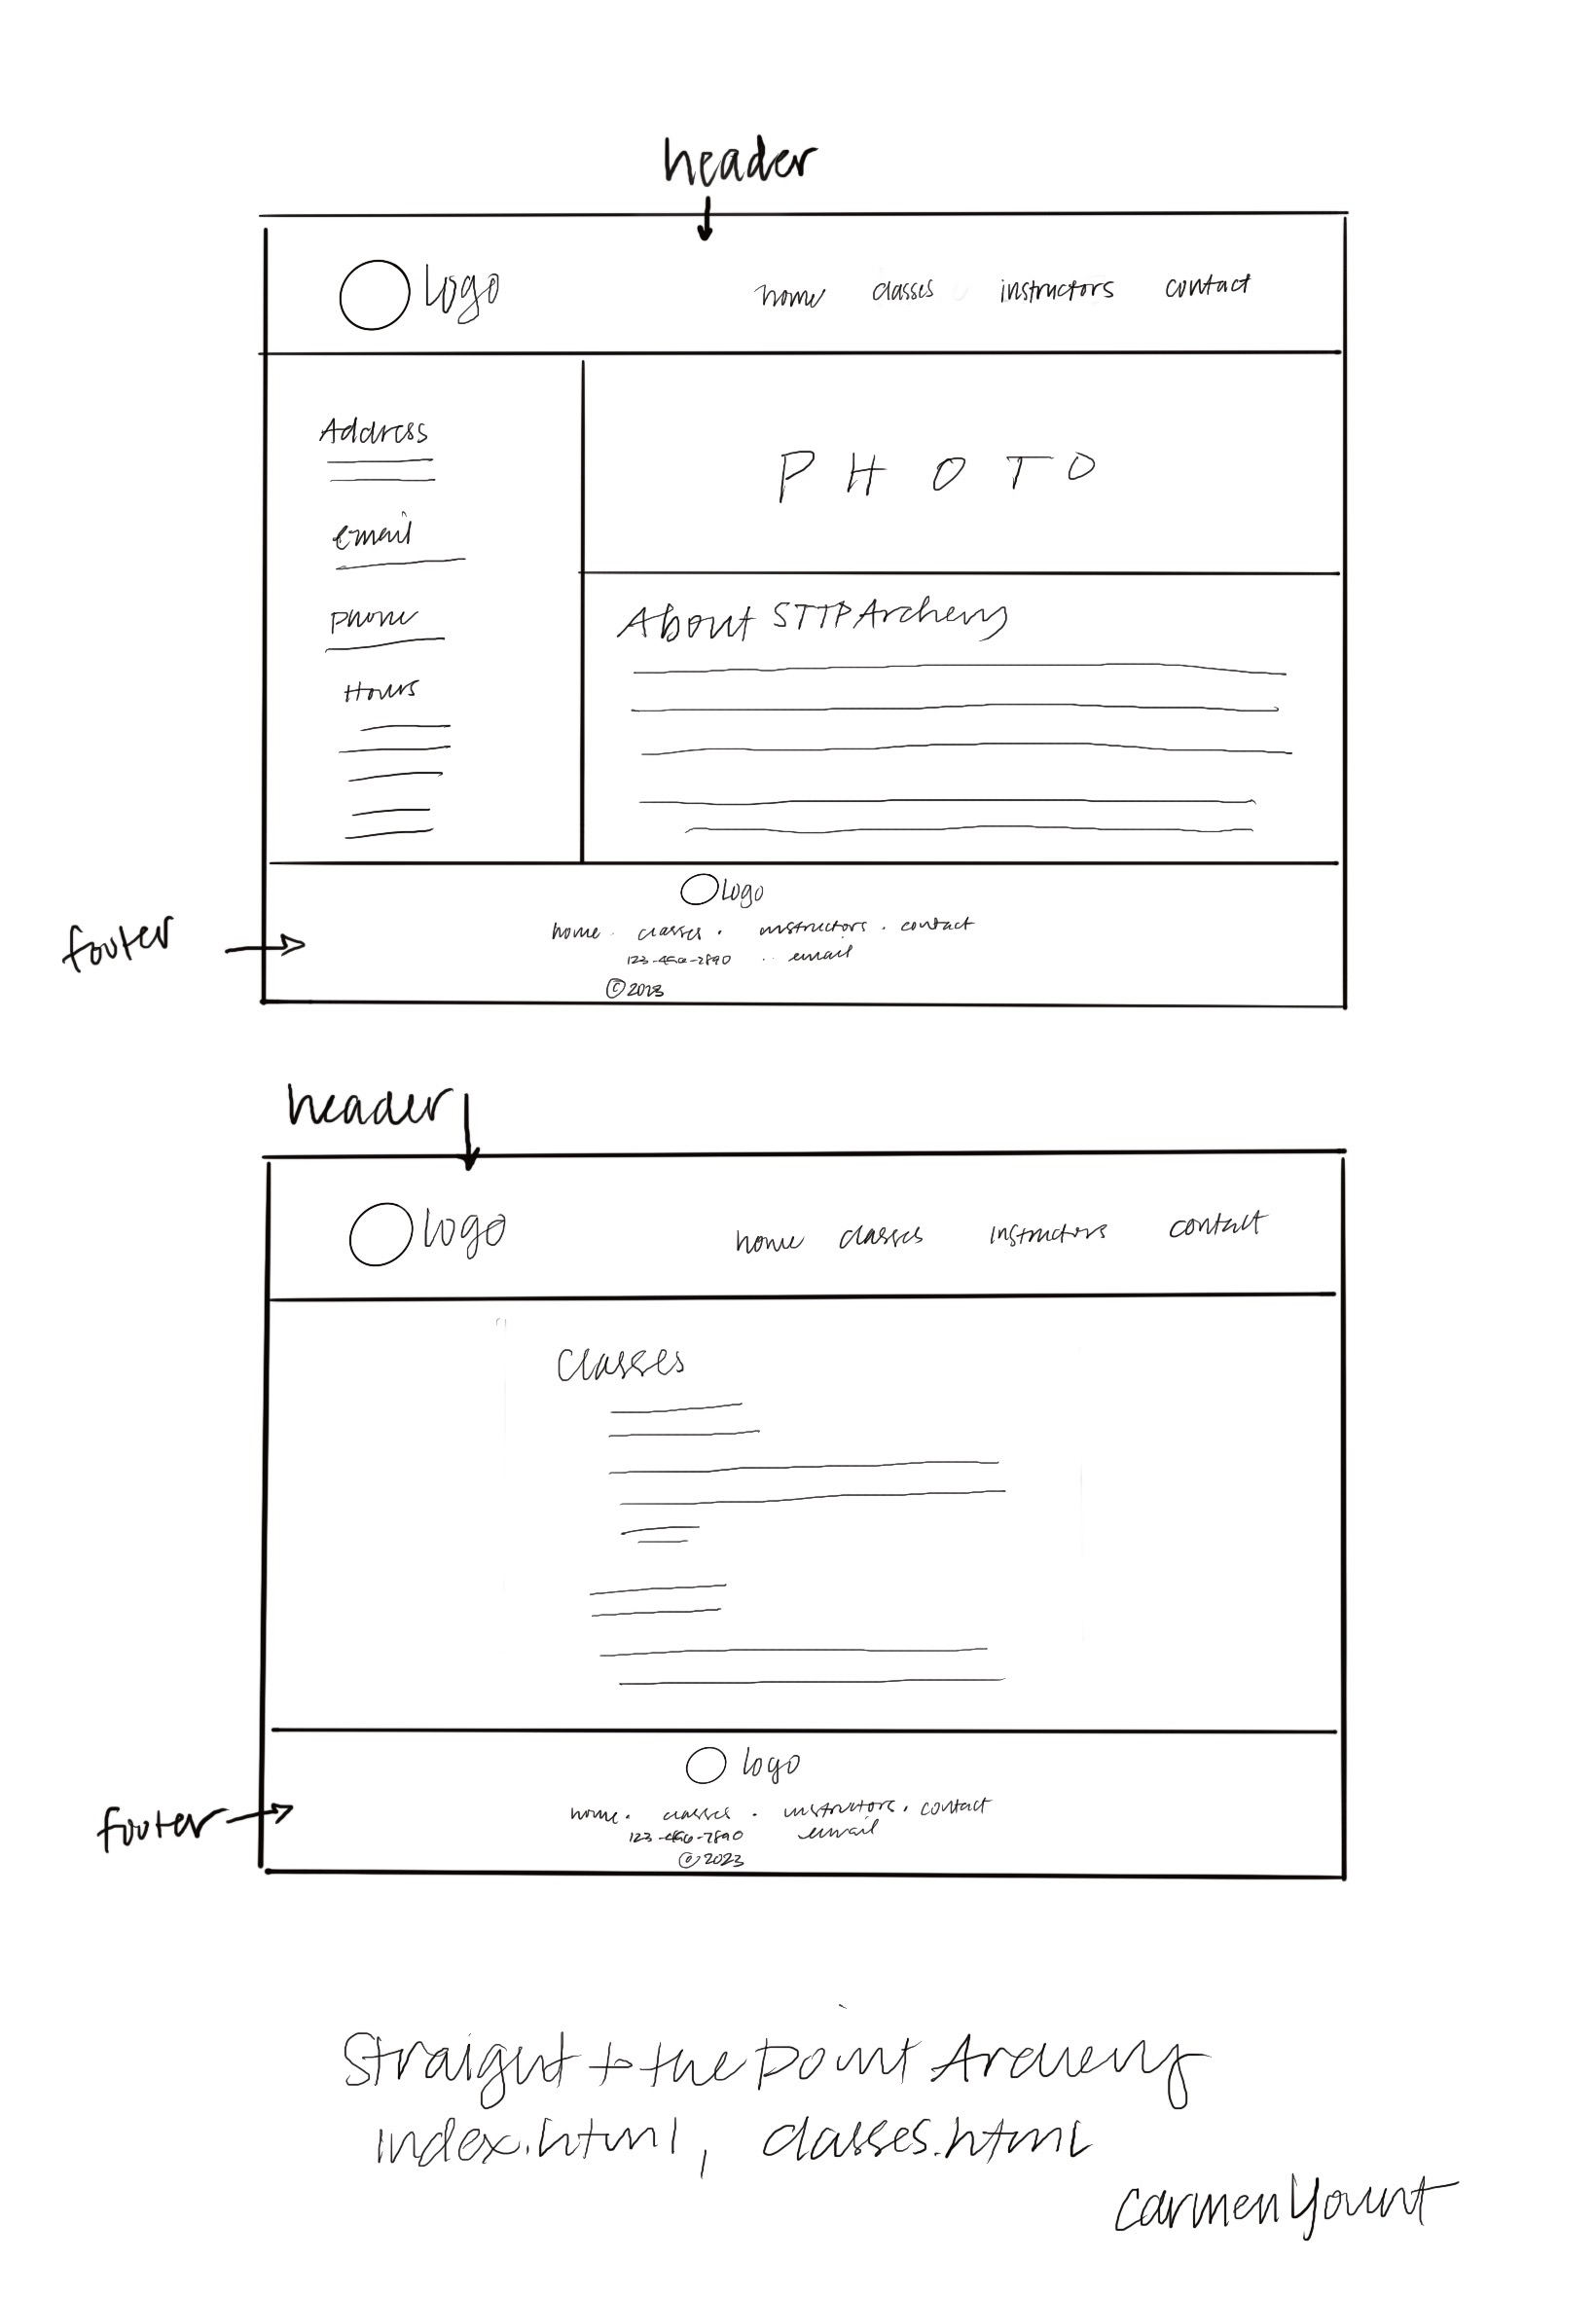 header
logo home classes instructors contact
Address
email
phone
Hours
PHOTO
About STTP Archery
logo
home . classes . instructors . contact
123-456-7890 .. email
© 2023
footer
header
logo home classes instructors contact
Classes
logo
home . classes . instructors . contact
123-456-7890 email
© 2023
footer
Straight to the Point Archery
index.html, classes.html
Carmen Yount